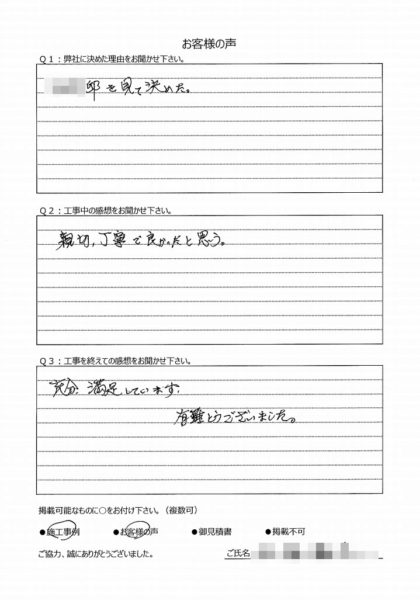 お客様の声
Q1：弊社に決めた理由をお聞かせ下さい。
邸を見て決めた。
Q2：工事中の感想をお聞かせ下さい。
親切、丁寧で良かったと思う。
Q3：工事を終えての感想をお聞かせ下さい。
充分、満足しています。
有難とうございました。
掲載可能なものに○をお付け下さい。（複数可）
●施工事例 ●お客様の声 ●御見積書 ●掲載不可
ご協力、誠にありがとうございました。 ご氏名